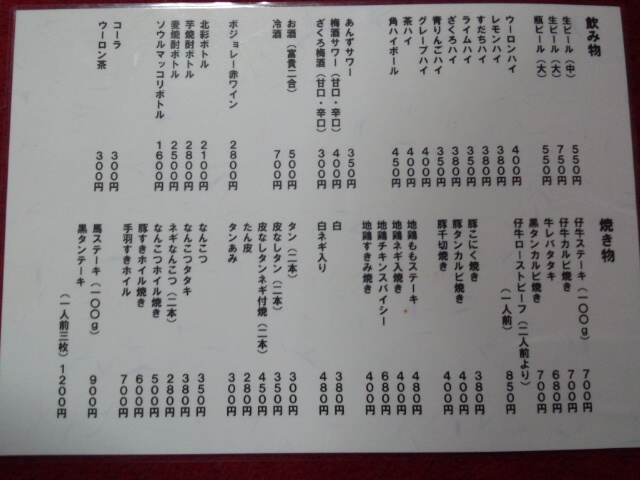 飲み物
生ビール（中） 550円
生ビール（大） 750円
瓶ビール（大） 550円
ウーロンハイ 400円
レモンハイ 380円
すだちハイ 380円
ライムハイ 350円
ざくろハイ 380円
青りんごハイ 350円
グレープハイ 400円
茶ハイ 400円
角ハイボール 450円
あんずサワー 350円
梅酒サワー（甘口・辛口） 400円
ざくろ梅酒（甘口・辛口） 300円
お酒（富貴二合） 500円
冷酒 700円
ボジョレー赤ワイン 2800円
北彩ボトル 2100円
芋焼酎ボトル 2800円
麦焼酎ボトル 2500円
ソウルマッコリボトル 1600円
コーラ 300円
ウーロン茶 300円
焼き物
仔牛ステーキ（一〇〇g） 700円
仔牛カルビ焼き 700円
牛レバタタキ 680円
黒タンカルビ焼き 700円
仔牛ローストビーフ（二人前より）
（一人前） 850円
豚こにく焼き 380円
豚タンカルビ焼き 400円
豚千切焼き 400円
地鶏ももステーキ 480円
地鶏ネギ入焼き 400円
地鶏チキンスパイシー 680円
地鶏すきみ焼き 400円
白 380円
白ネギ入り 480円
タン（二本） 300円
皮なしタン（二本） 350円
皮なしタンネギ付焼（二本） 450円
たん皮 280円
タンあみ 300円
なんこつ 350円
なんこつタタキ 380円
ネギなんこつ（二本） 280円
なんこつホイル焼き 500円
豚すきホイル焼き 600円
手羽すきホイル 700円
馬ステーキ（一〇〇g） 900円
黒タンテーキ
（一人前三枚） 1200円